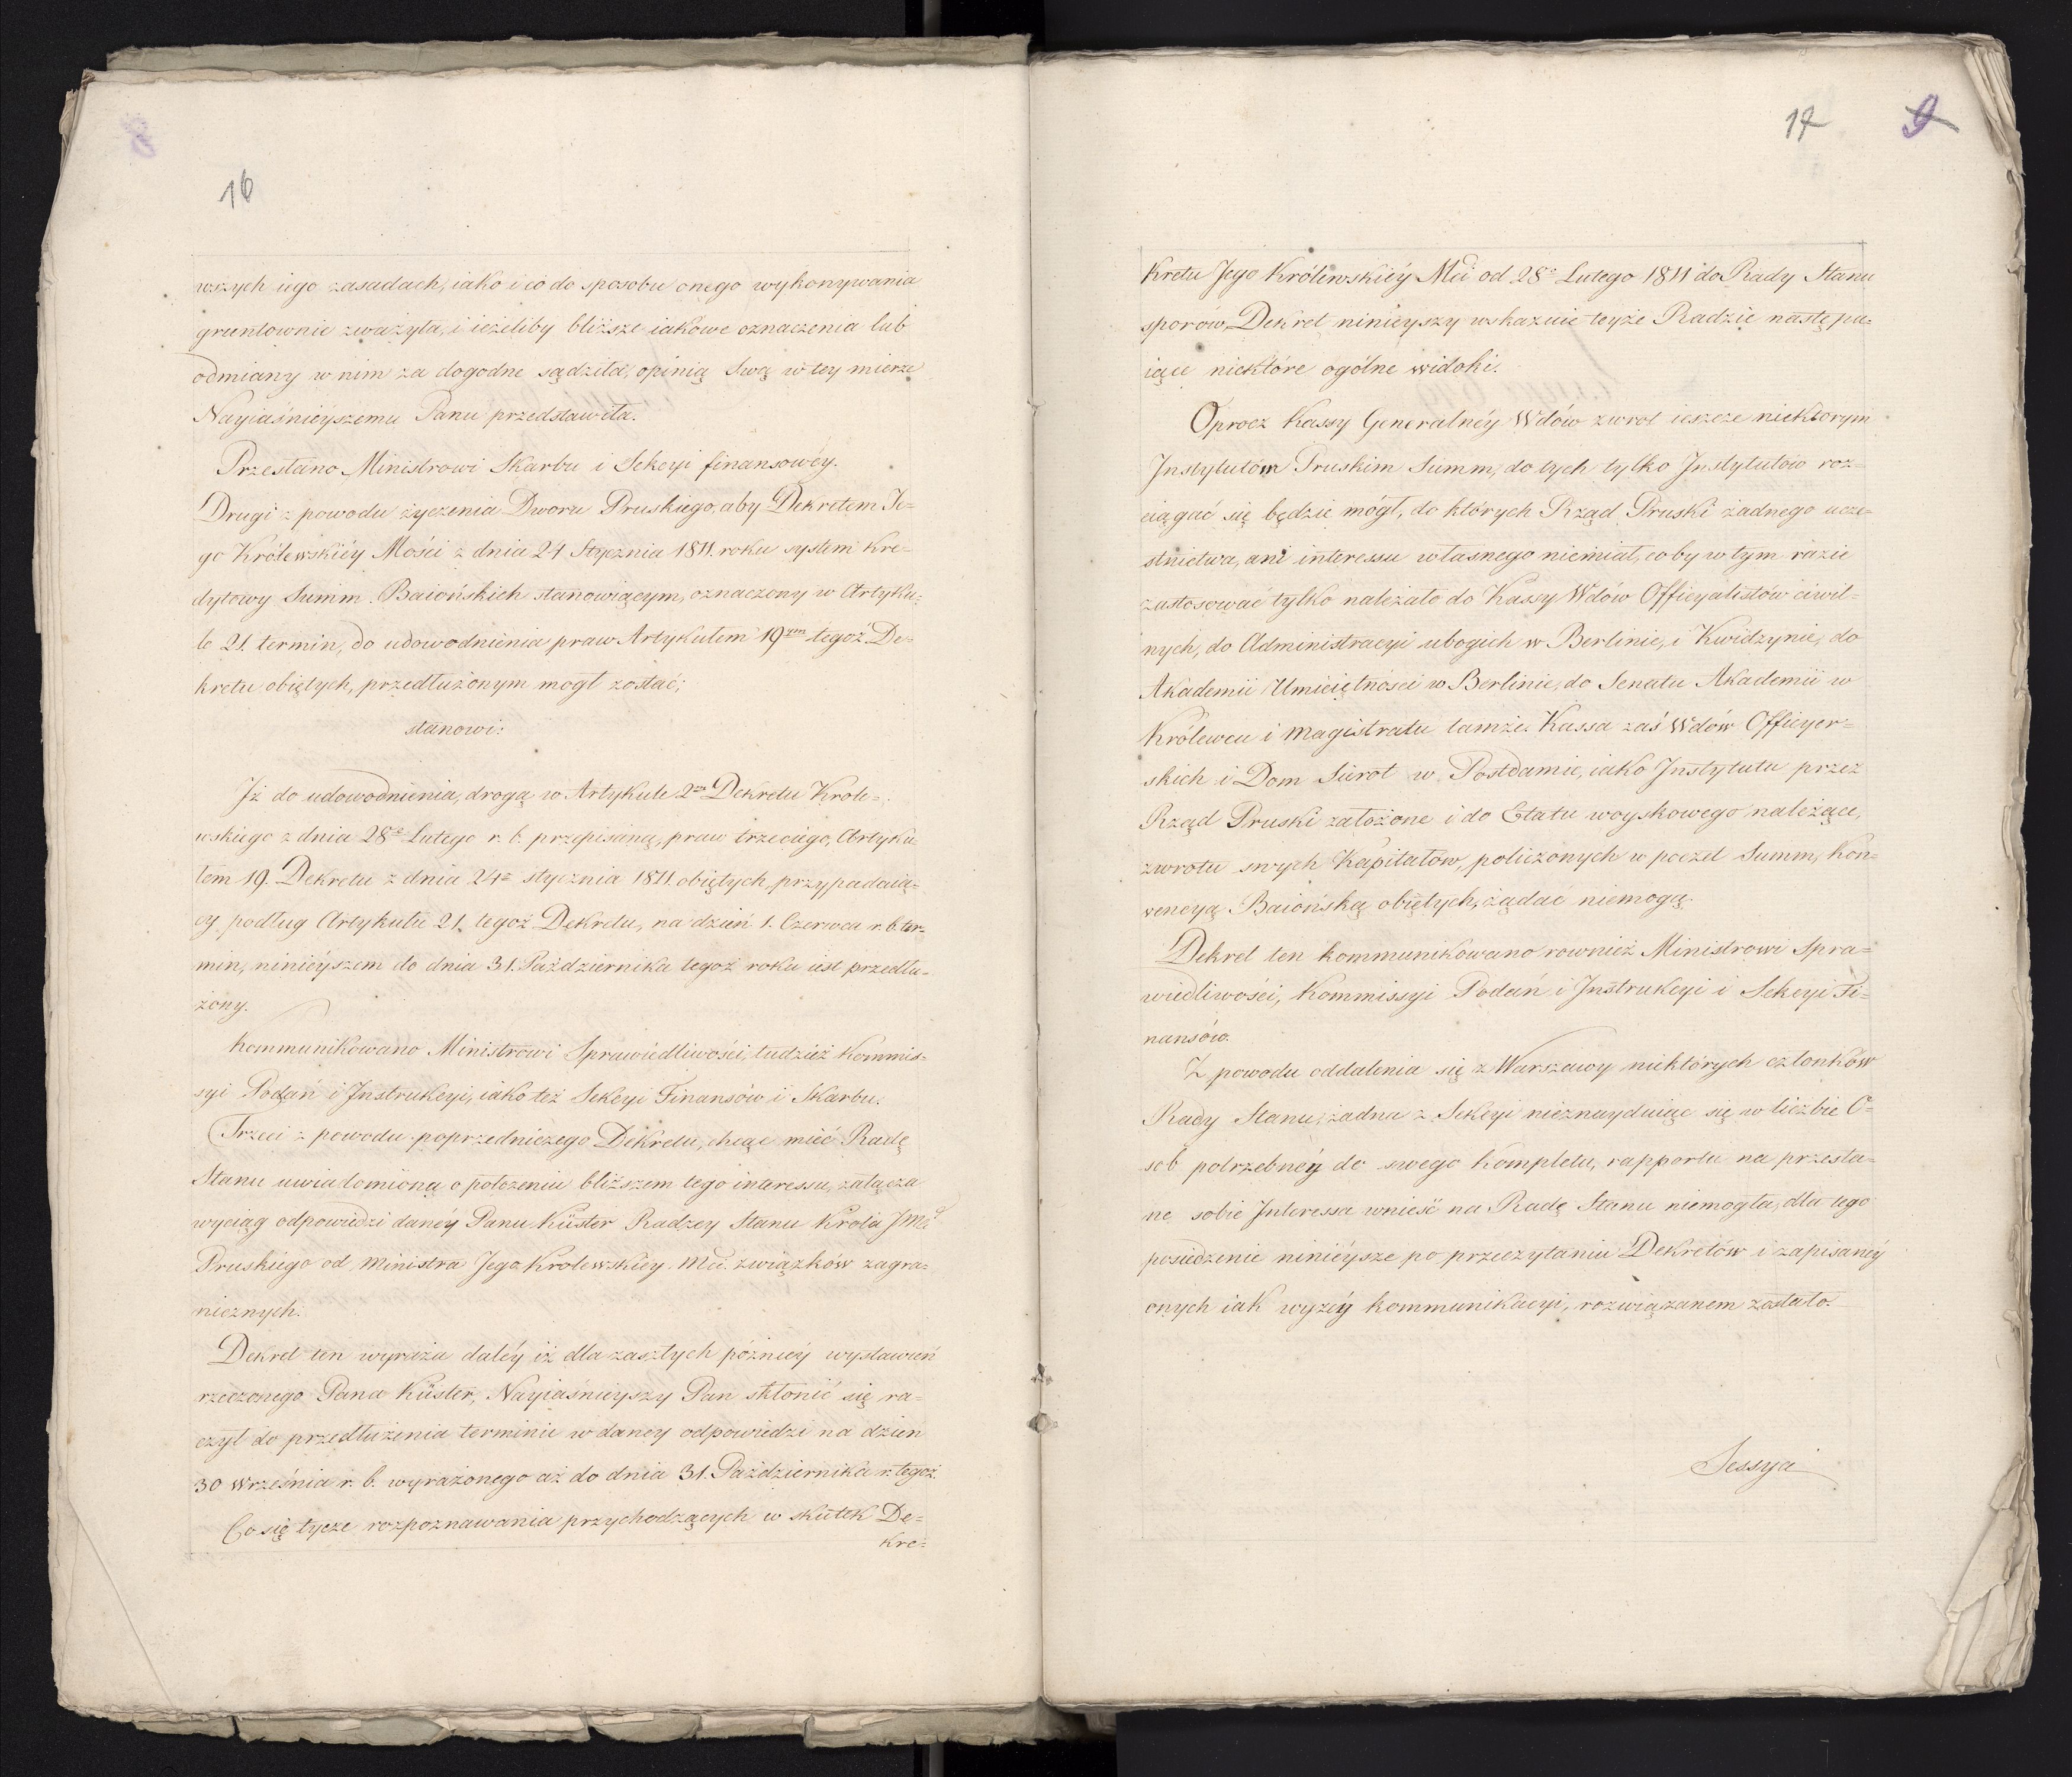 16
wszych iego zasadach, iako i co do sposobu onego wykonywania
gruntownie zważyła, i ieżeliby bliższe iakowe oznaczenia lub
odmiany w nim za dogodne sądziła, opinią swą w tey mierze
Nayiaśnieyszemu Panu przedstawiła.
Przesłano Ministrowi Skarbu i Sekcyi finansowéy.
Drugi z powodu życzenia Dworu Pruskiego, aby Dekretem Je=
go Królewskiéy Mości z dnia 24 Stycznia 1811. roku system kre=
dytowy Summ Baiońskich stanowiącym, oznaczony w Artyku=
le 21. termin, do udowodnienia praw Artykułem 19ym tegoż De=
kretu obiętych, przedłużonym mogł zostać;
stanowi:
Jż do udowodnienia, drogą w Artykule 2m Dekretu Króle=
wskiego z dnia 28go Lutego r. b. przepisaną, praw trzeciego, Artyku=
łem 19. Dekretu z dnia 24o stycznia 1811. obiętych, przypadaią=
cy podług Artykułu 21. tegoż Dekretu, na dzień 1. Czerwca r. b. ter=
min, ninieyszem do dnia 31. Października tegoż roku iest przedłu=
żony.
Kommunikowano Ministrowi Sprawiedliwości, tudzież Kommis=
syi Podań i Jnstrukcyi, iako też Sekcyi Finansów i Skarbu.
Trzeci z powodu poprzedniczego Dekretu, chcąc mieć Radę
Stanu uwiadomioną o położeniu bliższem tego interessu, załącza
wyciąg odpowiedzi danéy Panu Küster Radzcy Stanu Króla JMci
Pruskiego od Ministra Jego Królewskiéy Mci. związków zagra=
nicznych.
Dekret ten wyraża daléy iż dla zaszłych późniéy wystawień
rzeczonego Pana Küster, Nayiaśnieyszy Pan skłonić się ra=
czył do przedłużenia terminu w daney odpowiedzi na dzień
30 Września r. b. wyrażonego aż do dnia 31. Października r. tegoż.
Co się tycze rozpoznawania przychodzących w skutek De=
kre=
17 9
kretu Jego Królewskiéy Mci od 28o Lutego 1811 do Rady Stanu
sporów, Dekret ninieyszy wskazuie teyże Radzie nastę pu=
iące niektóre ogólne widoki.
Oprocz Kassy Generalnéy Wdów zwrot ieszcze niektorym
Jnstytutóm Pruskim Summ, do tych tylko Jnstytutów roz=
ciągać się będzie mógł, do których Rząd Pruski żadnego ucze=
stnictwa, ani interessu własnego niemiał, co by w tym razie
zastosować tylko należało do Kassy Wdów Officyalistów ciwil=
nych, do Administracyi ubogich w Berlinie, i Kwidzynie, do
Akademii Umieiętności w Berlinie, do Senatu Akademii w
Królewcu i Magistratu tamże. Kassa zaś Wdów Officyer=
skich i Dom Sierot w Postdamie, iako Jnstytutu przez
Rząd Pruski założone i do Etatu woyskowego należące,
zwrotu swych Kapitałow, policzonych w poczet Summ, kon=
wencyą Baiońską obiętych, żądać niemogą.
Dekret ten kommunikowano rownież Ministrowi Spra=
wiedliwości, Kommissyi Podań i Jnstrukcyi i Sekcyi Fi=
nansów.
Z powodu oddalenia się z Warszawy niektórych członków
Rady Stanu, żadna z Sekcyi nieznayduiąc się w liczbie O=
sob potrzebnéy do swego kompletu, rapportu na przesła=
ne sobie Jnteressa wnieść na Radę Stanu niemogła, dla tego
posiedzenie ninieysze po przeczytaniu Dekretów i zapisanéy
onych iak wyzéy kommunikacyi, rozwiązanem zostało.
Sessya